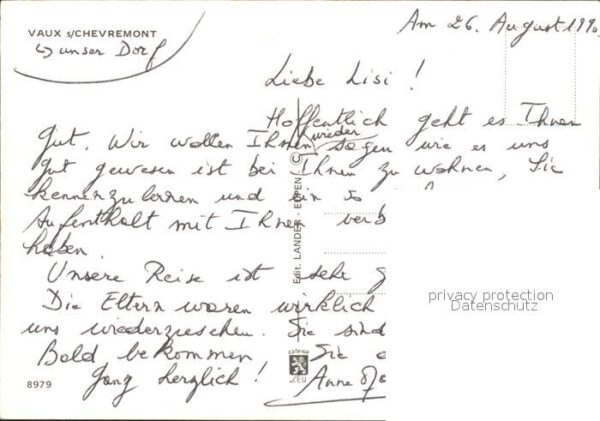 VAUX s/CHEVREMONT
↳ unser Dorf
Am 26. August 1990
Liebe Lisi !
Hoffentlich geht es Ihnen
gut. Wir wollen Ihnen wieder sagen wie es uns
gut gewesen ist bei Ihnen zu wohnen, Sie
kennenzulernen und ein so
Aufenthalt mit Ihnen verb
haben.
Unsere Reise ist sehr g
Die Eltern waren wirklich
uns wiederzusehen. Sie sind
Bald bekommen Sie
Ganz herzlich !
Anne
Edit. LANDER - EUPEN ©
8979
privacy protection
Datenschutz